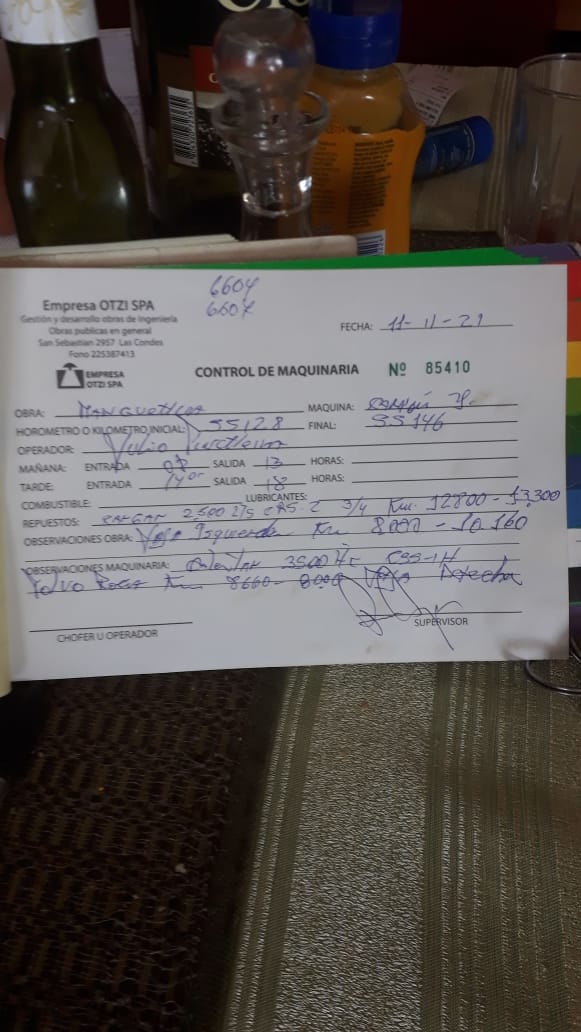 6604
6604
Empresa OTZI SPA
Gestión y desarrollo obras de Ingeniería
Obras publicas en general
San Sebastian 2957 Las Condes
Fono 225387413
EMPRESA
OTZI SPA
FECHA: 11-11-21
CONTROL DE MAQUINARIA Nº 85410
OBRA: MAQUINA:
HOROMETRO O KILOMETRO INICIAL: 55128 FINAL: 55146
OPERADOR: Julio
MAÑANA: ENTRADA 08 SALIDA 13 HORAS:
TARDE: ENTRADA 14 SALIDA 18 HORAS:
COMBUSTIBLE: LUBRICANTES:
REPUESTOS: 2500 Lts CRS-2 3/4 Km. 12800-13,300
OBSERVACIONES OBRA: Izquierda Km 8000-10.160
OBSERVACIONES MAQUINARIA: Calentar 3500 CSS-1H
Km 8660-8000
CHOFER U OPERADOR
SUPERVISOR